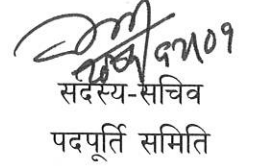 सदस्य-सचिव
पदपूर्ति समिति